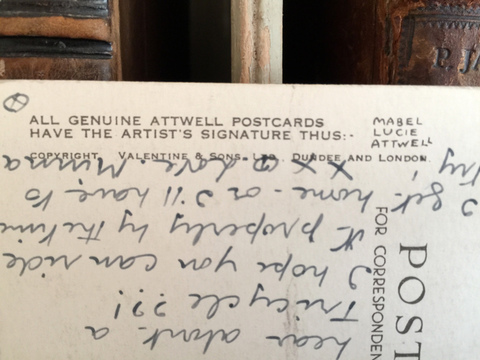 P. JA
ALL GENUINE ATTWELL POSTCARDS
HAVE THE ARTIST'S SIGNATURE THUS:-
MABEL
LUCIE
ATTWELL
COPYRIGHT. VALENTINE & SONS. LTD., DUNDEE AND LONDON.
POST
FOR CORRESPONDEN
hear about a
Tricycle ??!
I hope you can ride
it properly by the time
I get home - or I'll have to
try! x x Love. Minna